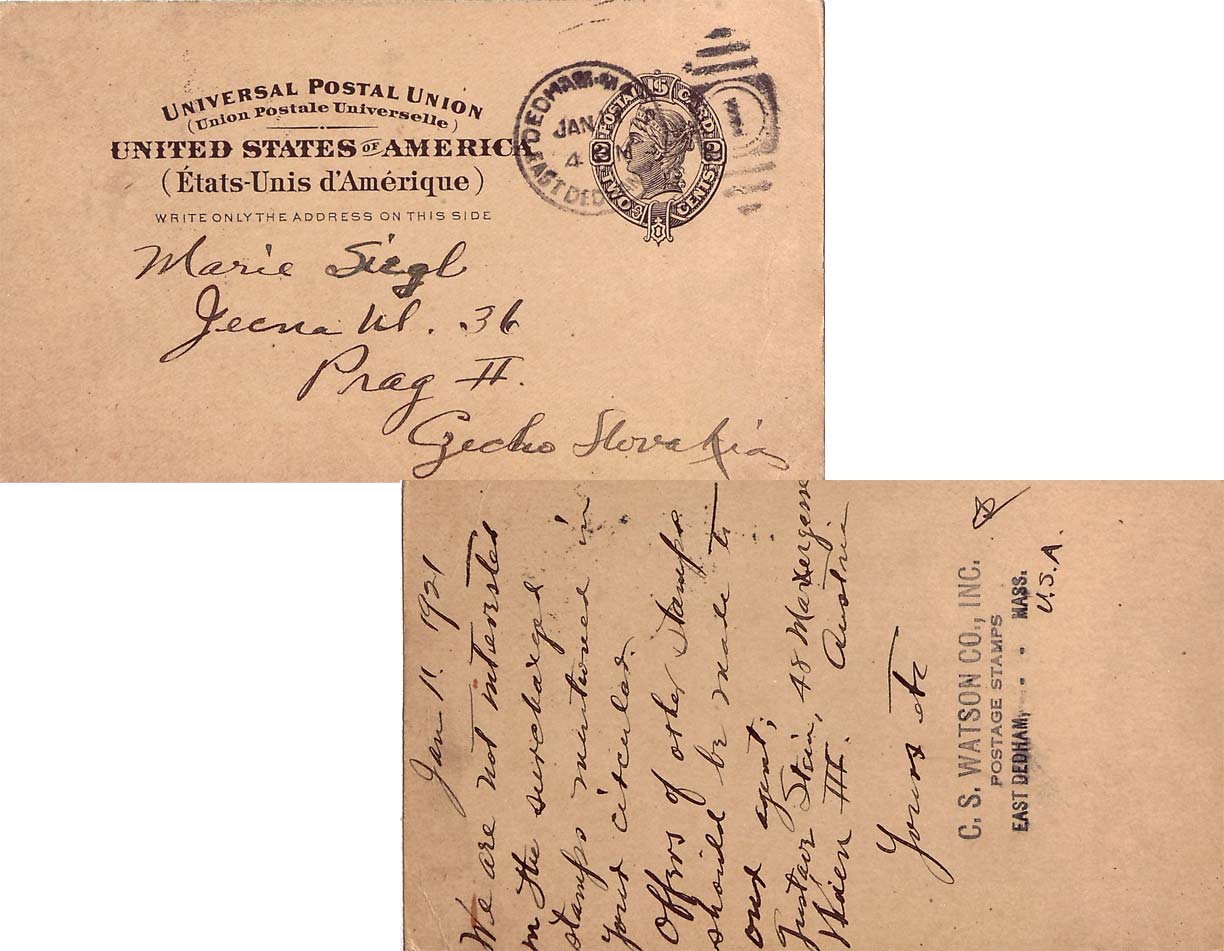 UNIVERSAL POSTAL UNION
(Union Postale Universelle)
UNITED STATES OF AMERICA
(États-Unis d'Amérique)
WRITE ONLY THE ADDRESS ON THIS SIDE
DEDHAM
JAN
4
EAST DED
POSTAL CARD
TWO CENTS
Marie Siegl
Jecna Ul. 36
Prag II.
Czecho Slovakia
Jan 1. 1921
We are not interested
in the surcharged
stamps mentioned in
your circular.
Offers of other stamps
should be made to
our agent;
Gustav Stein, 48 Marxergasse
Wien III. Austria
Yours etc
C. S. WATSON CO., INC.
POSTAGE STAMPS
EAST DEDHAM, - - MASS.
U.S.A.